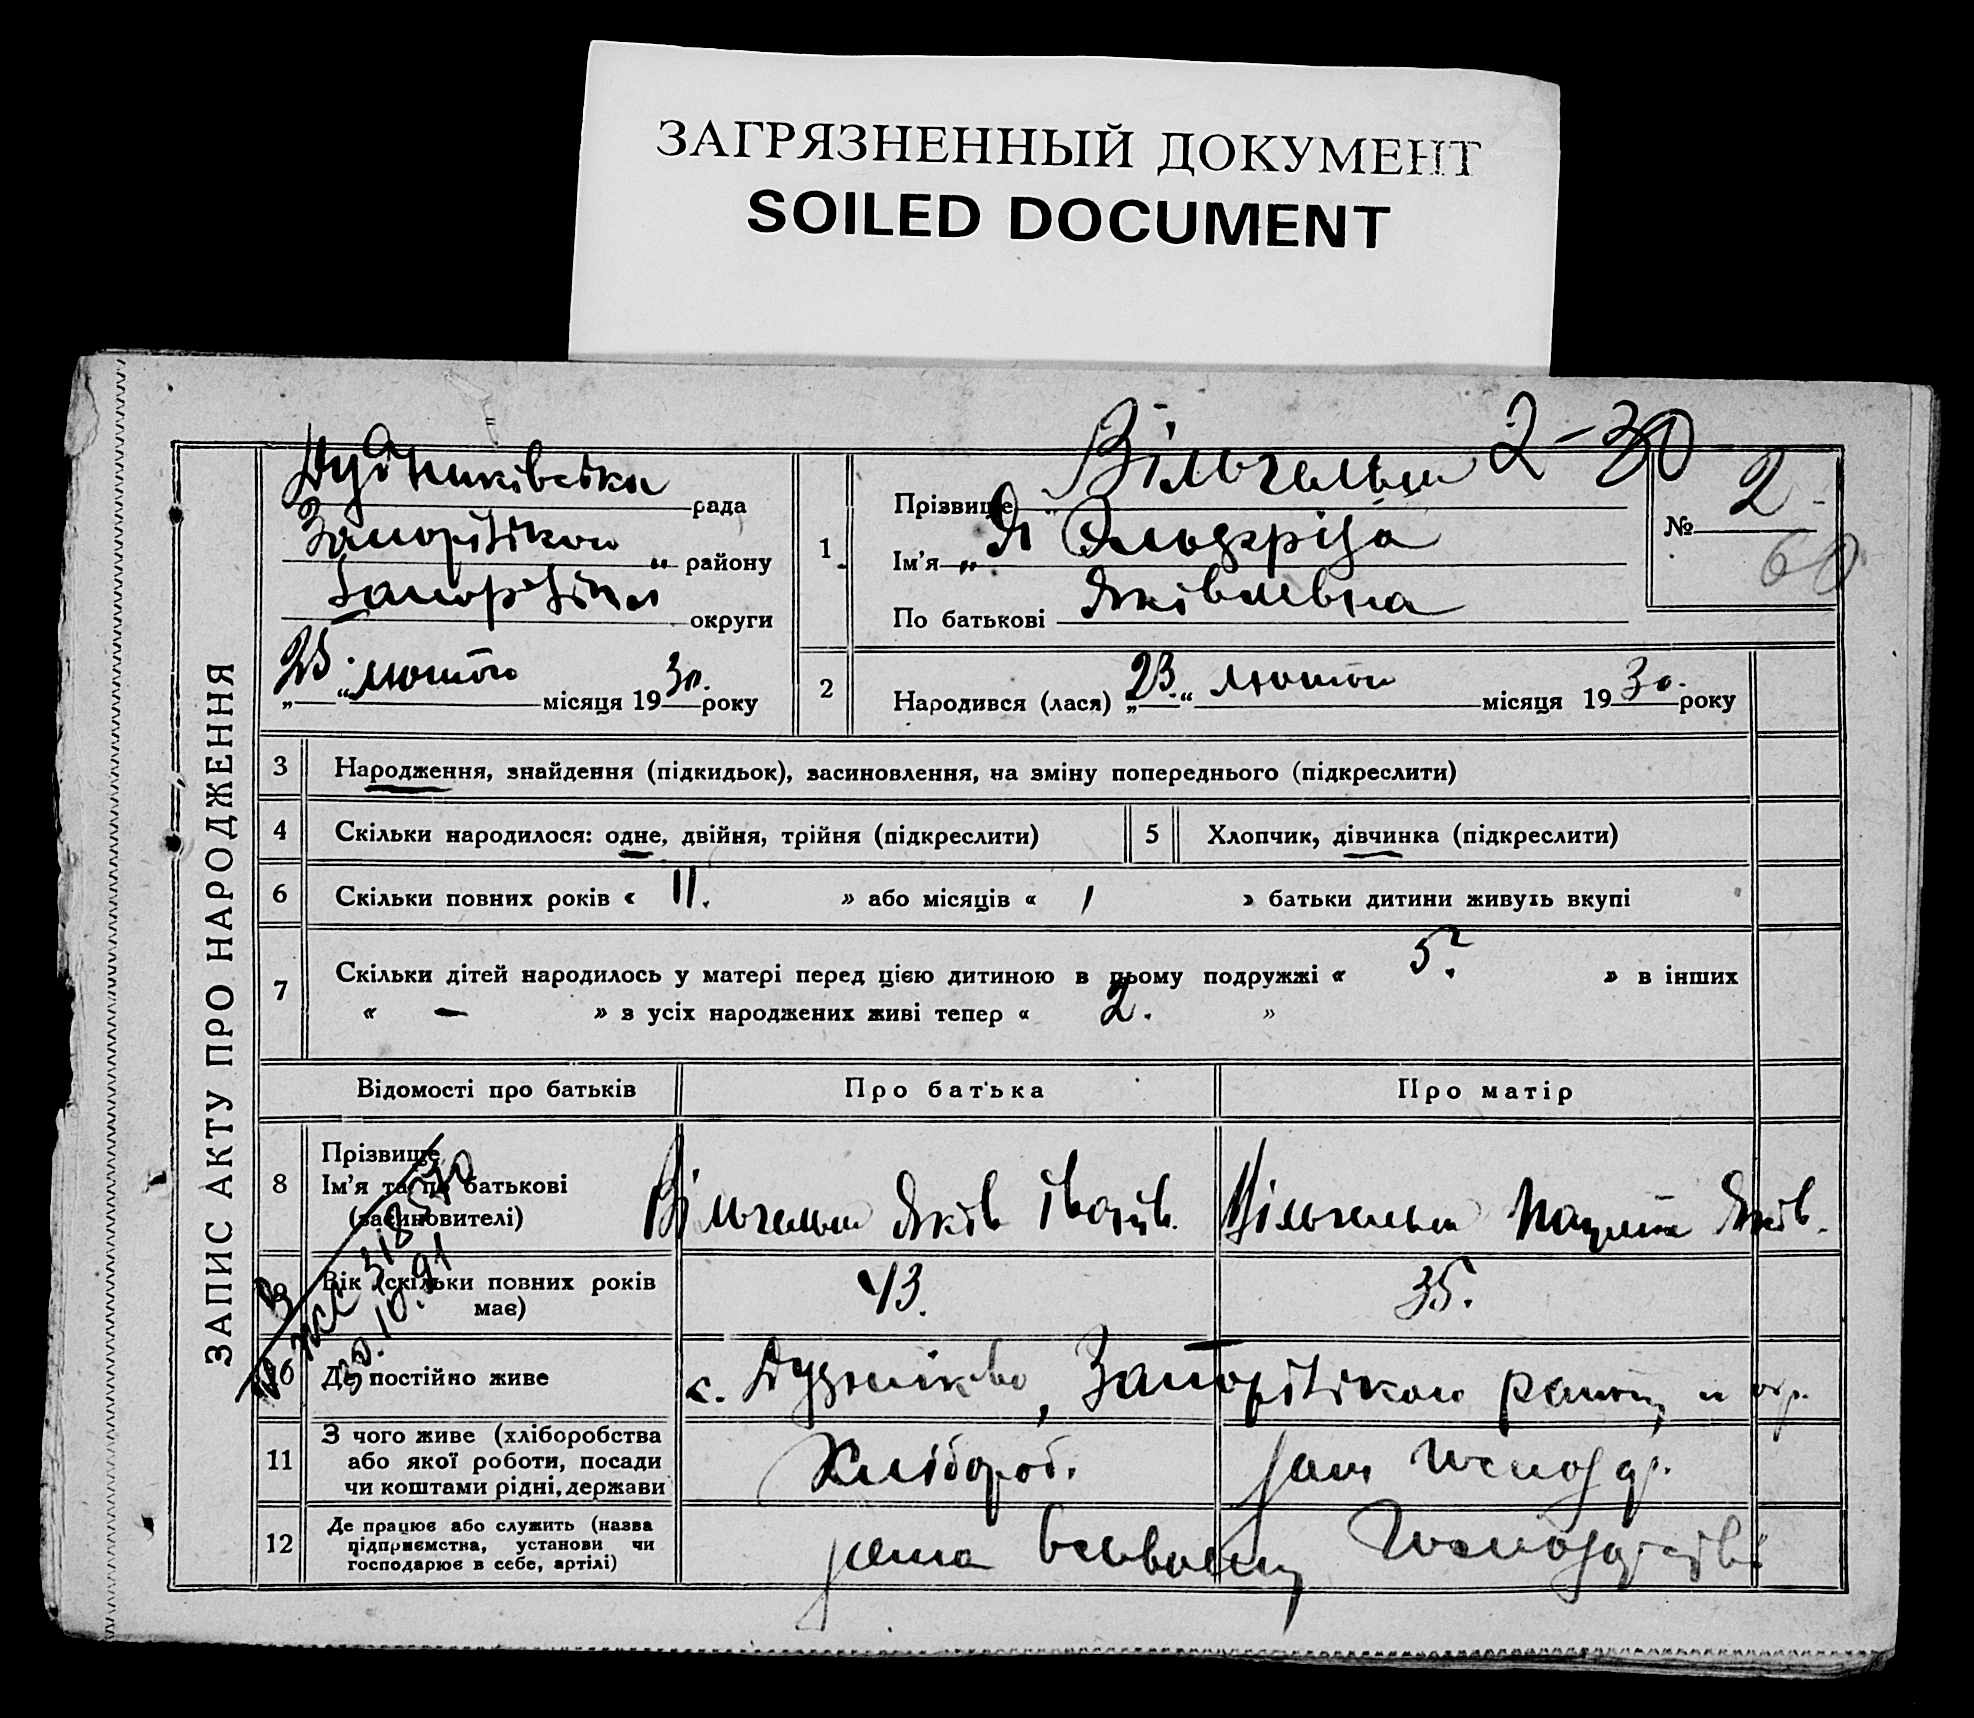 ЗАГРЯЗНЕННЫЙ ДОКУМЕНТ
SOILED DOCUMENT
ЗАПИС АКТУ ПРО НАРОДЖЕННЯ
рада
району
округи
23 „ “ лютого місяця 1930. року
2-30
1 Прізвище Вільгельм
Ім'я „
По батькові Яківлевна
№ 2
60
2 Народився (лася) „23.“ лютого місяця 1930. року
3 Народження, знайдення (підкидьок), засиновлення, на зміну попереднього (підкреслити)
4 Скільки народилося: одне, двійня, трійня (підкреслити) 5 Хлопчик, дівчинка (підкреслити)
6 Скільки повних років « 11. » або місяців « 1 » батьки дитини живуть вкупі
7 Скільки дітей народилось у матері перед цією дитиною в цьому подружжі « 5. » в інших
« — » з усіх народжених живі тепер « 2. »
Відомості про батьків Про батька Про матір
8 Прізвище,
Ім'я та по батькові
(засиновителі)
Вільгельм Яків Іванів. Вільгельм Яків.
9 Вік (скільки повних років
має)
43. 35.
30.10.91
10 Де постійно живе
с.
11 З чого живе (хліборобства
або якої роботи, посади
чи коштами рідні, держави
Хлібороб.
12 Де працює або служить (назва
підприємства, установи чи
господарює в себе, артілі)